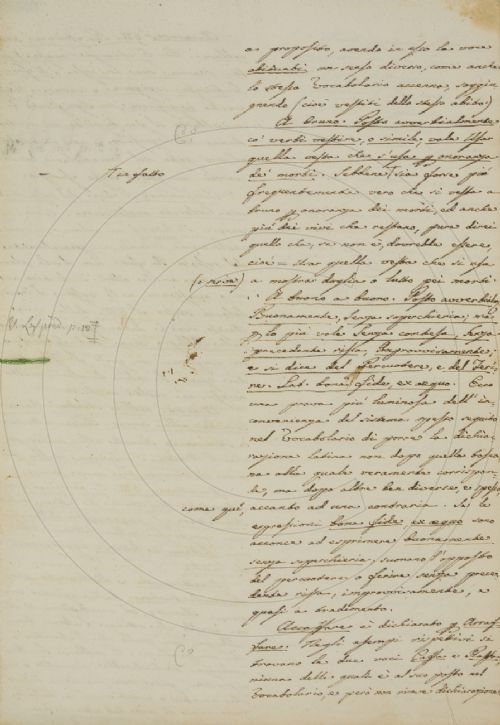 a proposito, avendo in esso la voce
abituati un senso diverso, come anche
lo stesso Vocabolario accenna, soggiu-
gnendo (cioè vestiti dello stesso abito.)
A bruno. Posto avverbialmente
co' verbi vestire, o simile, vale Usar
quella vesta che s'usa p onoranza
de' morti. Sebbene sia forse più
frequentemente vero che si vesta a
bruno p onoranza dei morti, ed anche
più dei vivi che restano, pure direi
quello che, se non è, dovrebbe essere,
cioè = Usar quella vesta che si usa
(o scriva) a mostrar doglia o lutto pei morti.
A buono a buono. Posto avverbial.
Buonamente, senza soperchieria; ma
p lo più vale senza contesa, senza
precedente rissa, Improvvisamente,
e si dice del Percuotere, e del Feri-
re. Lat. bona fide, ex æquo. Ecco
una prova più luminosa dell' in-
convenienza del sistema spesso seguito
nel Vocabolario di porre la dichia-
razione latina non dopo quella tosca-
na alla quale veramente corrispon-
de, ma dopo altre ben diverse, e spesso,
come quì, accanto ad una contraria. Se le
espressioni bona fide, ex æquo sono
acconce ad esprimere buonamente
senza soperchieria, suonano l'opposto
del percuotere o ferire senza prece-
dente rissa, improvvisamente, e
quasi a tradimento.
Accaffare è dichiarato p Arraf-
fare. Negli esempi rispettivi si
trovano le due voci Caffa e Raffa
niuna delle quali è al suo posto nel
Vocabolario, e però non riceve dichiarazione